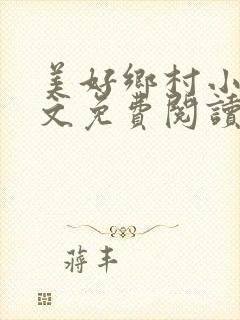 美好鄉村小
文免費閱讀
蔣丰